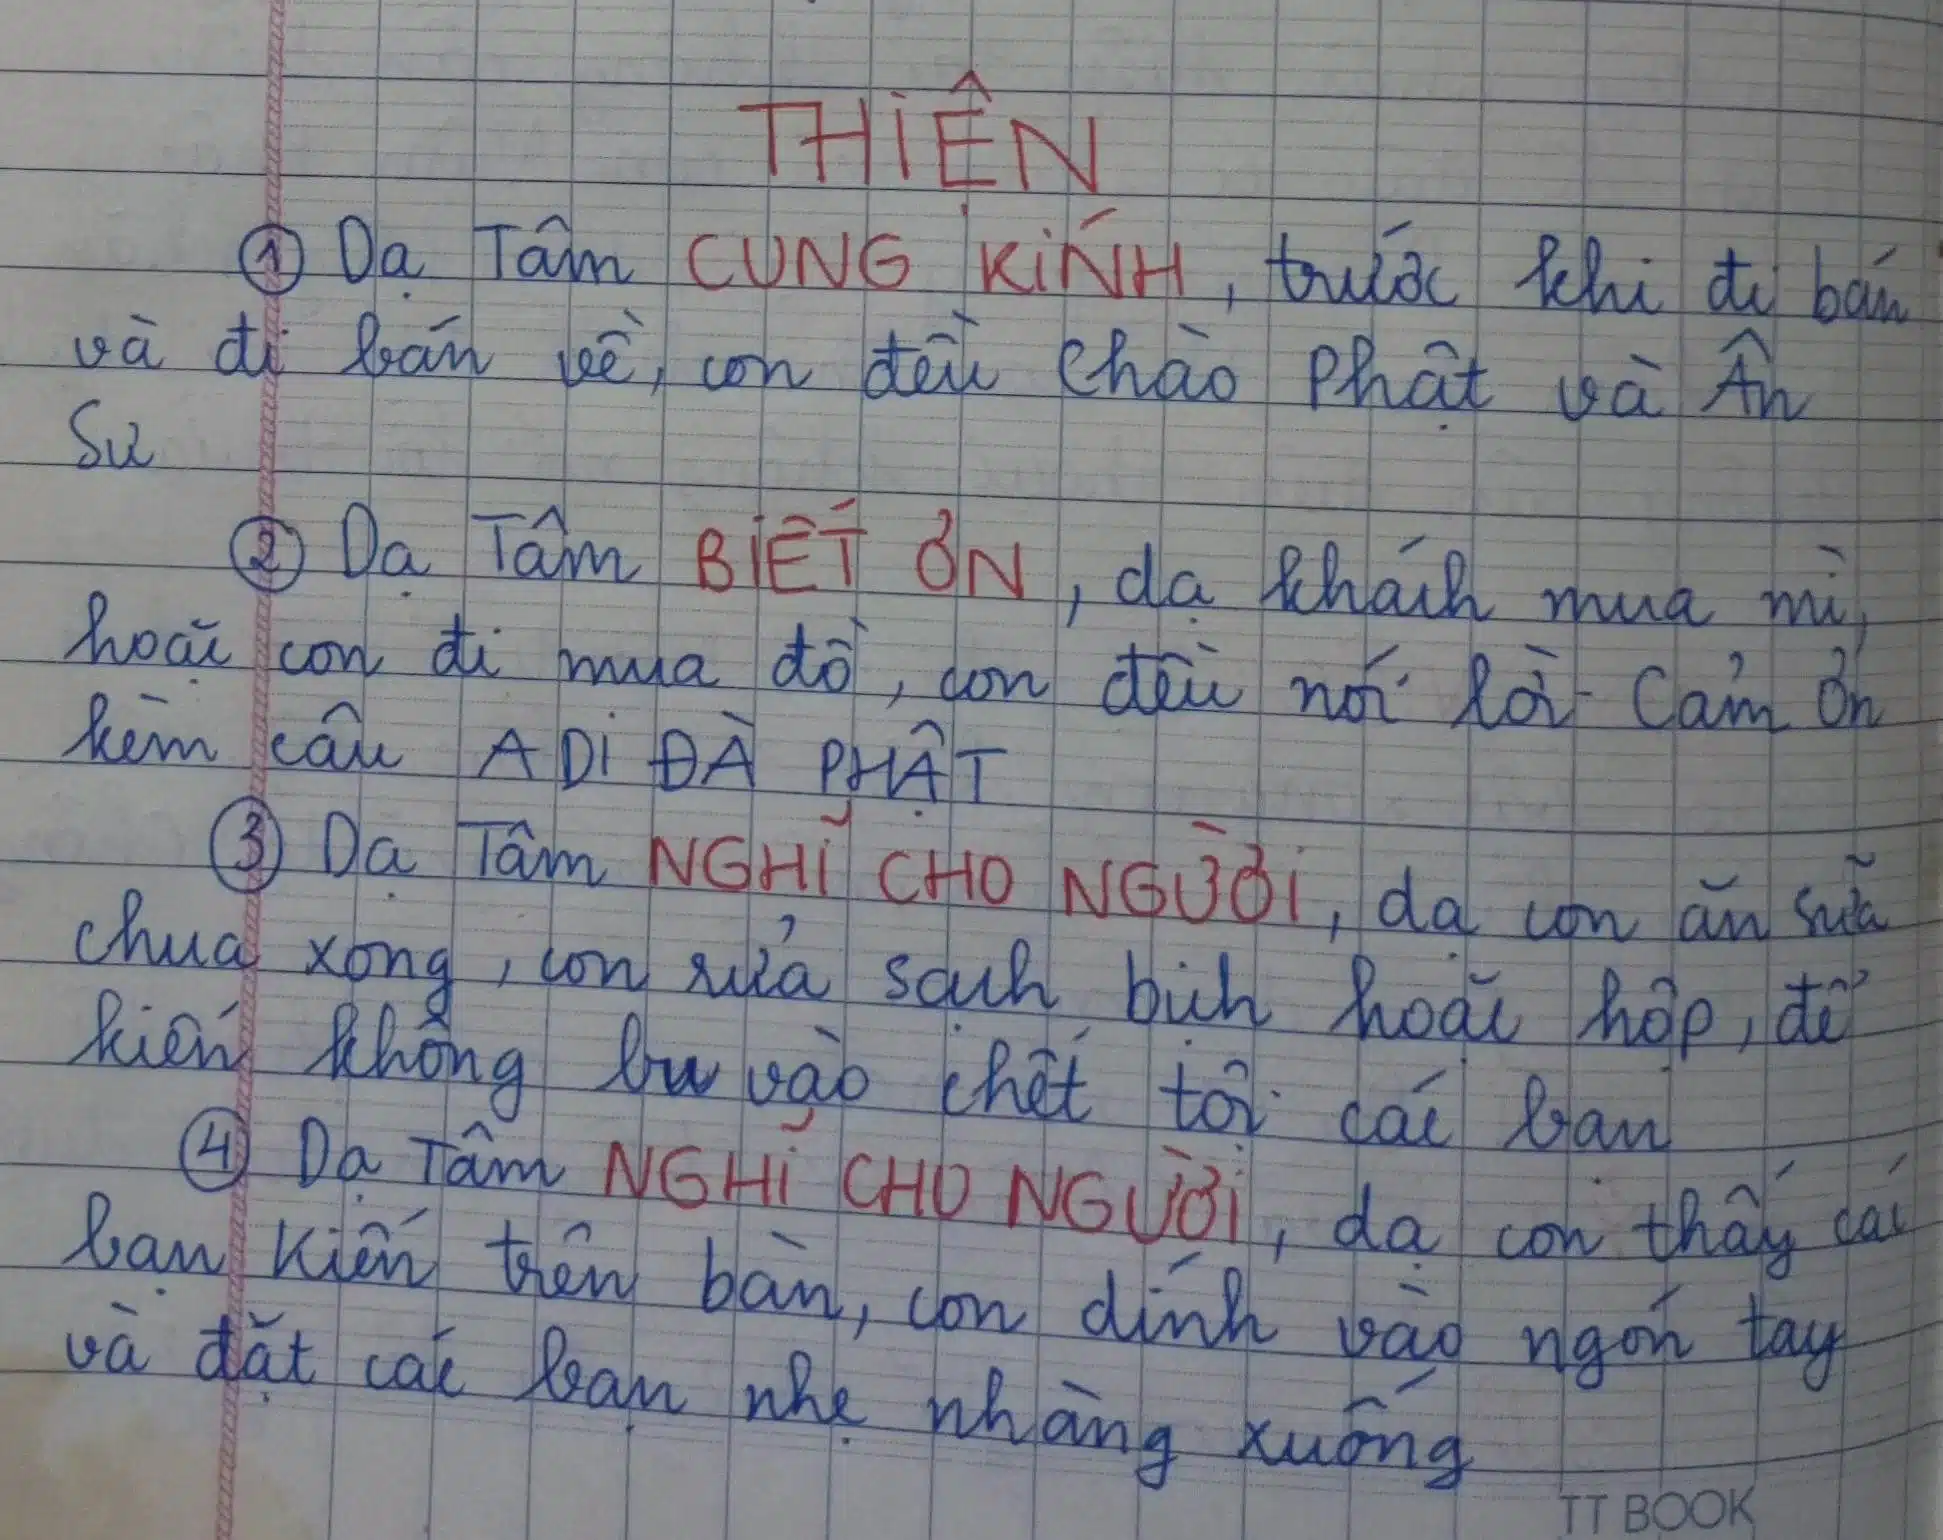 THIỆN
① Dạ Tâm CUNG KÍNH, trước khi đi bán
và đi bán về, con đều chào Phật và Ân
Sư
② Dạ Tâm BIẾT ƠN, dạ khách mua mì,
hoặc con đi mua đồ, con đều nói lời Cảm Ơn
kèm câu A DI ĐÀ PHẬT
③ Dạ Tâm NGHĨ CHO NGƯỜI, dạ con ăn sữa
chua xong, con rửa sạch bịch hoặc hộp, để
kiến không bu vào chết tội các bạn
④ Dạ Tâm NGHĨ CHO NGƯỜI, dạ con thấy các
bạn kiến trên bàn, con dính vào ngón tay
và đặt các bạn nhẹ nhàng xuống
TT BOOK